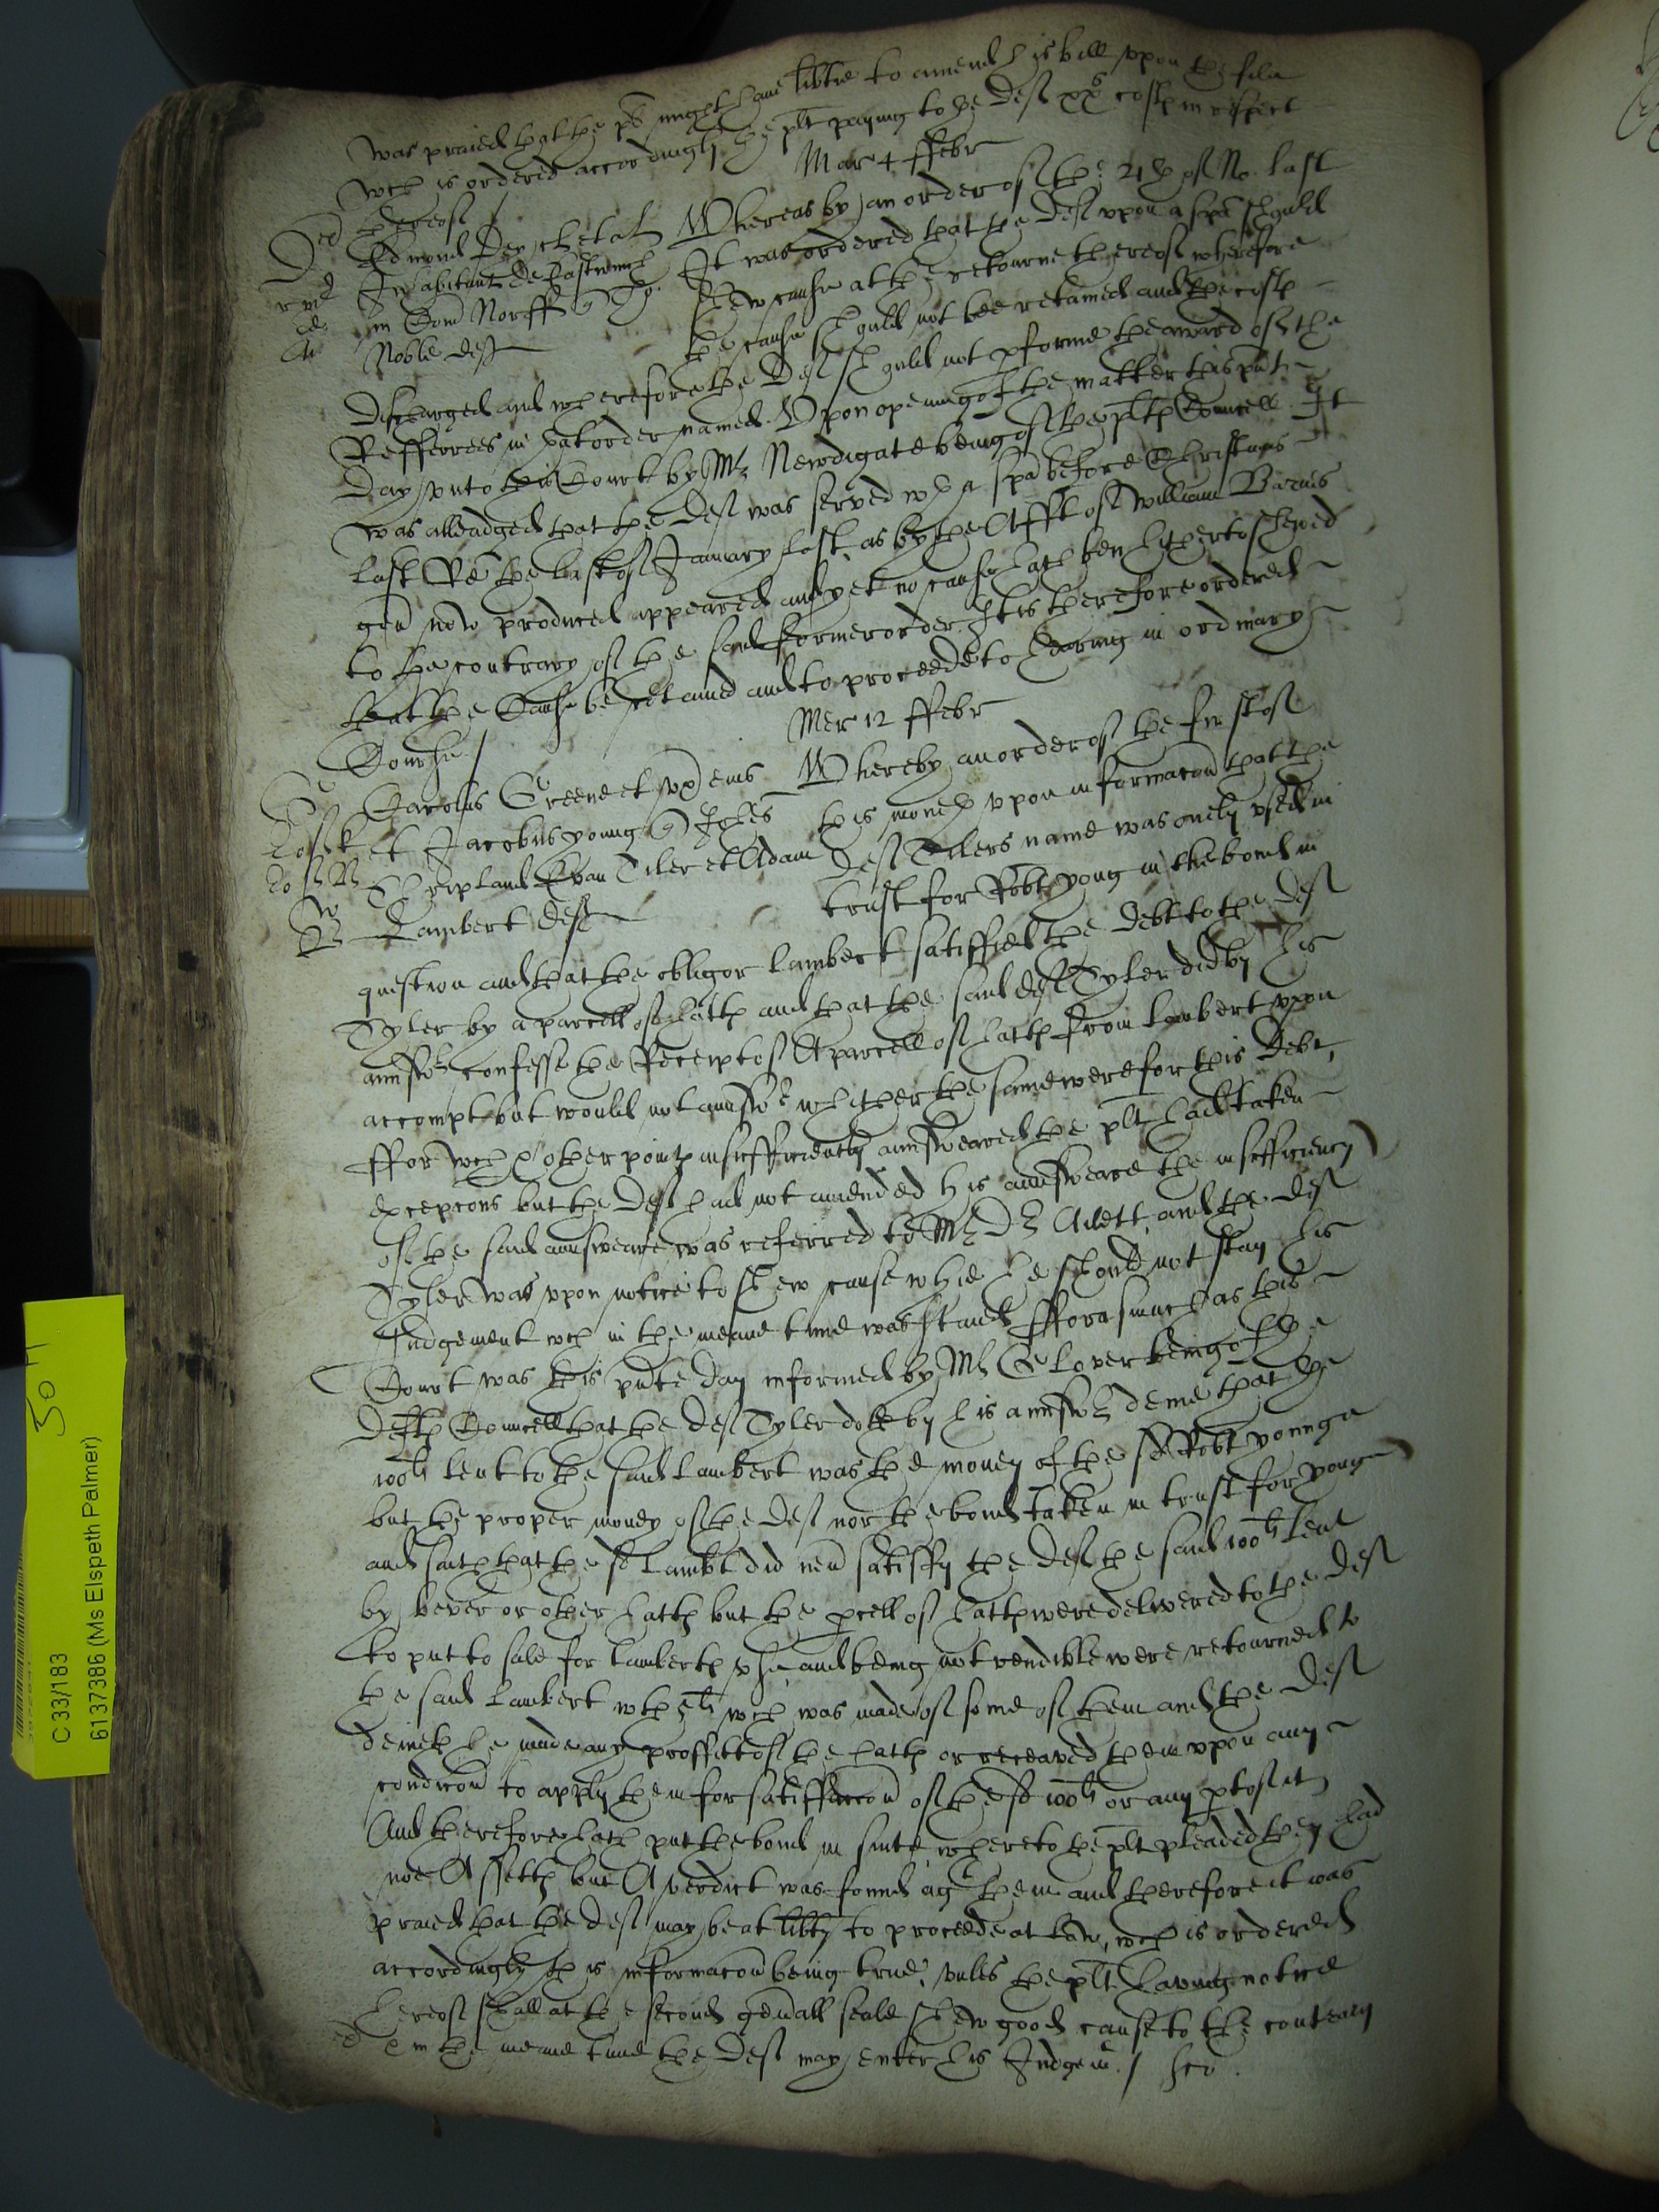 was praied that the pl might have libtie to amend his bill upon the file
wch is ordered accordingly the plt paying to the Deft xxs costs in respect
thereof /
Mar 4 ffebr
Edmond Dey et al
Inhabitant de Eastwinch
in Com Norff q Tho.
Noble deft
Whereas by an order of the 21th of No. last
It was ordered that the Deft upon a spa should
shew cause at the retourne thereof wherefore
the cause should not bee retained and the costs
discharged and wherefore the Deft should not pforme the award of the
Refferrees in that order named. Upon opening of the matter this pnte
Day unto this Court by Mr Newdigate being of the plts Councell It
was alleadged that the Deft was served wth a spa before Christmas
last Re the last of January last, as by the Afft of William Barnes
gen now produced appeared and yet no cause hath ben hitherto shewed
to the contrary of the said former order. It is therefore ordered
that the Cause be retained and to proceede to hearing in ordinary
Course /
Mer 12 ffebr
Carolus Greene et ux eius
et Jacobus young q
Shripland Evan Tiler et Adam
Lambert deft
Whereby an order of the first of
this moneth upon informacon that the
Deft Tilers name was onely used in
trust for Robt yong in the bond in
question and that the obligor Lambert satisfied the debt to the Deft
Tyler by a parcell of hatts and that the said deft Tyler did by his
answr confesse the Receipt of A parcell of hatts from Lambert upon
accompt but would not answr whither the same were for this Debt,
ffor wch & other points insufficiently answeared the plt had taken
excepcons but the Deft had not amended his answeare the insufficiency
of the said answeare was referred to Mr Dr and the Deft
Tyler was upon notice to shew cause whie he should not stay his
Judgement wch in the meane time was staied fforasmuch as this
Court was this pnte day informed by Mr Glover being of the
Defts Councell that the deft Tyler doth by his answr denie that the
100li lent to the said Lambert was the money of the sd Robt younge
but the proper money of the Deft nor the bond taken in trust for yonge
and saith that the sd Lambt did nevr satisfy the Deft the said 100li lent
by bever or other hatts but the pcell of hatts were delivered to the Deft
to put to sale for Lamberts use and being not vendible were retourned to
the said Lambert wth 5li wch was made of some of them and the Deft
denieth he made any proffitt of the hatts or receaved them upon any
condicon to apply them for satisfaccon of the sd 100li or any pt of it
And therefore hath put the bond in suite, whereto the plt pleaded they had
noe Assetts but A verdict was found agt them and therefore it was
praied that the deft may be at libty to proceede at Law, wch is ordered
accordingly this informacon being true, unles the plt having notice
hereof shall at the second genall seale shew good cause to the contrary
& in the meane time the Deft may enter his Judgemt /
C 33/183
6137386 (Ms Elspeth Palmer)